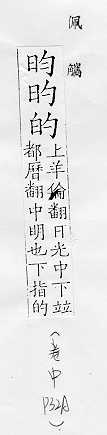 佩觿
昀旳的
上羊倫翻日光中下竝
都曆翻中明也下指的
(卷中 P32A)